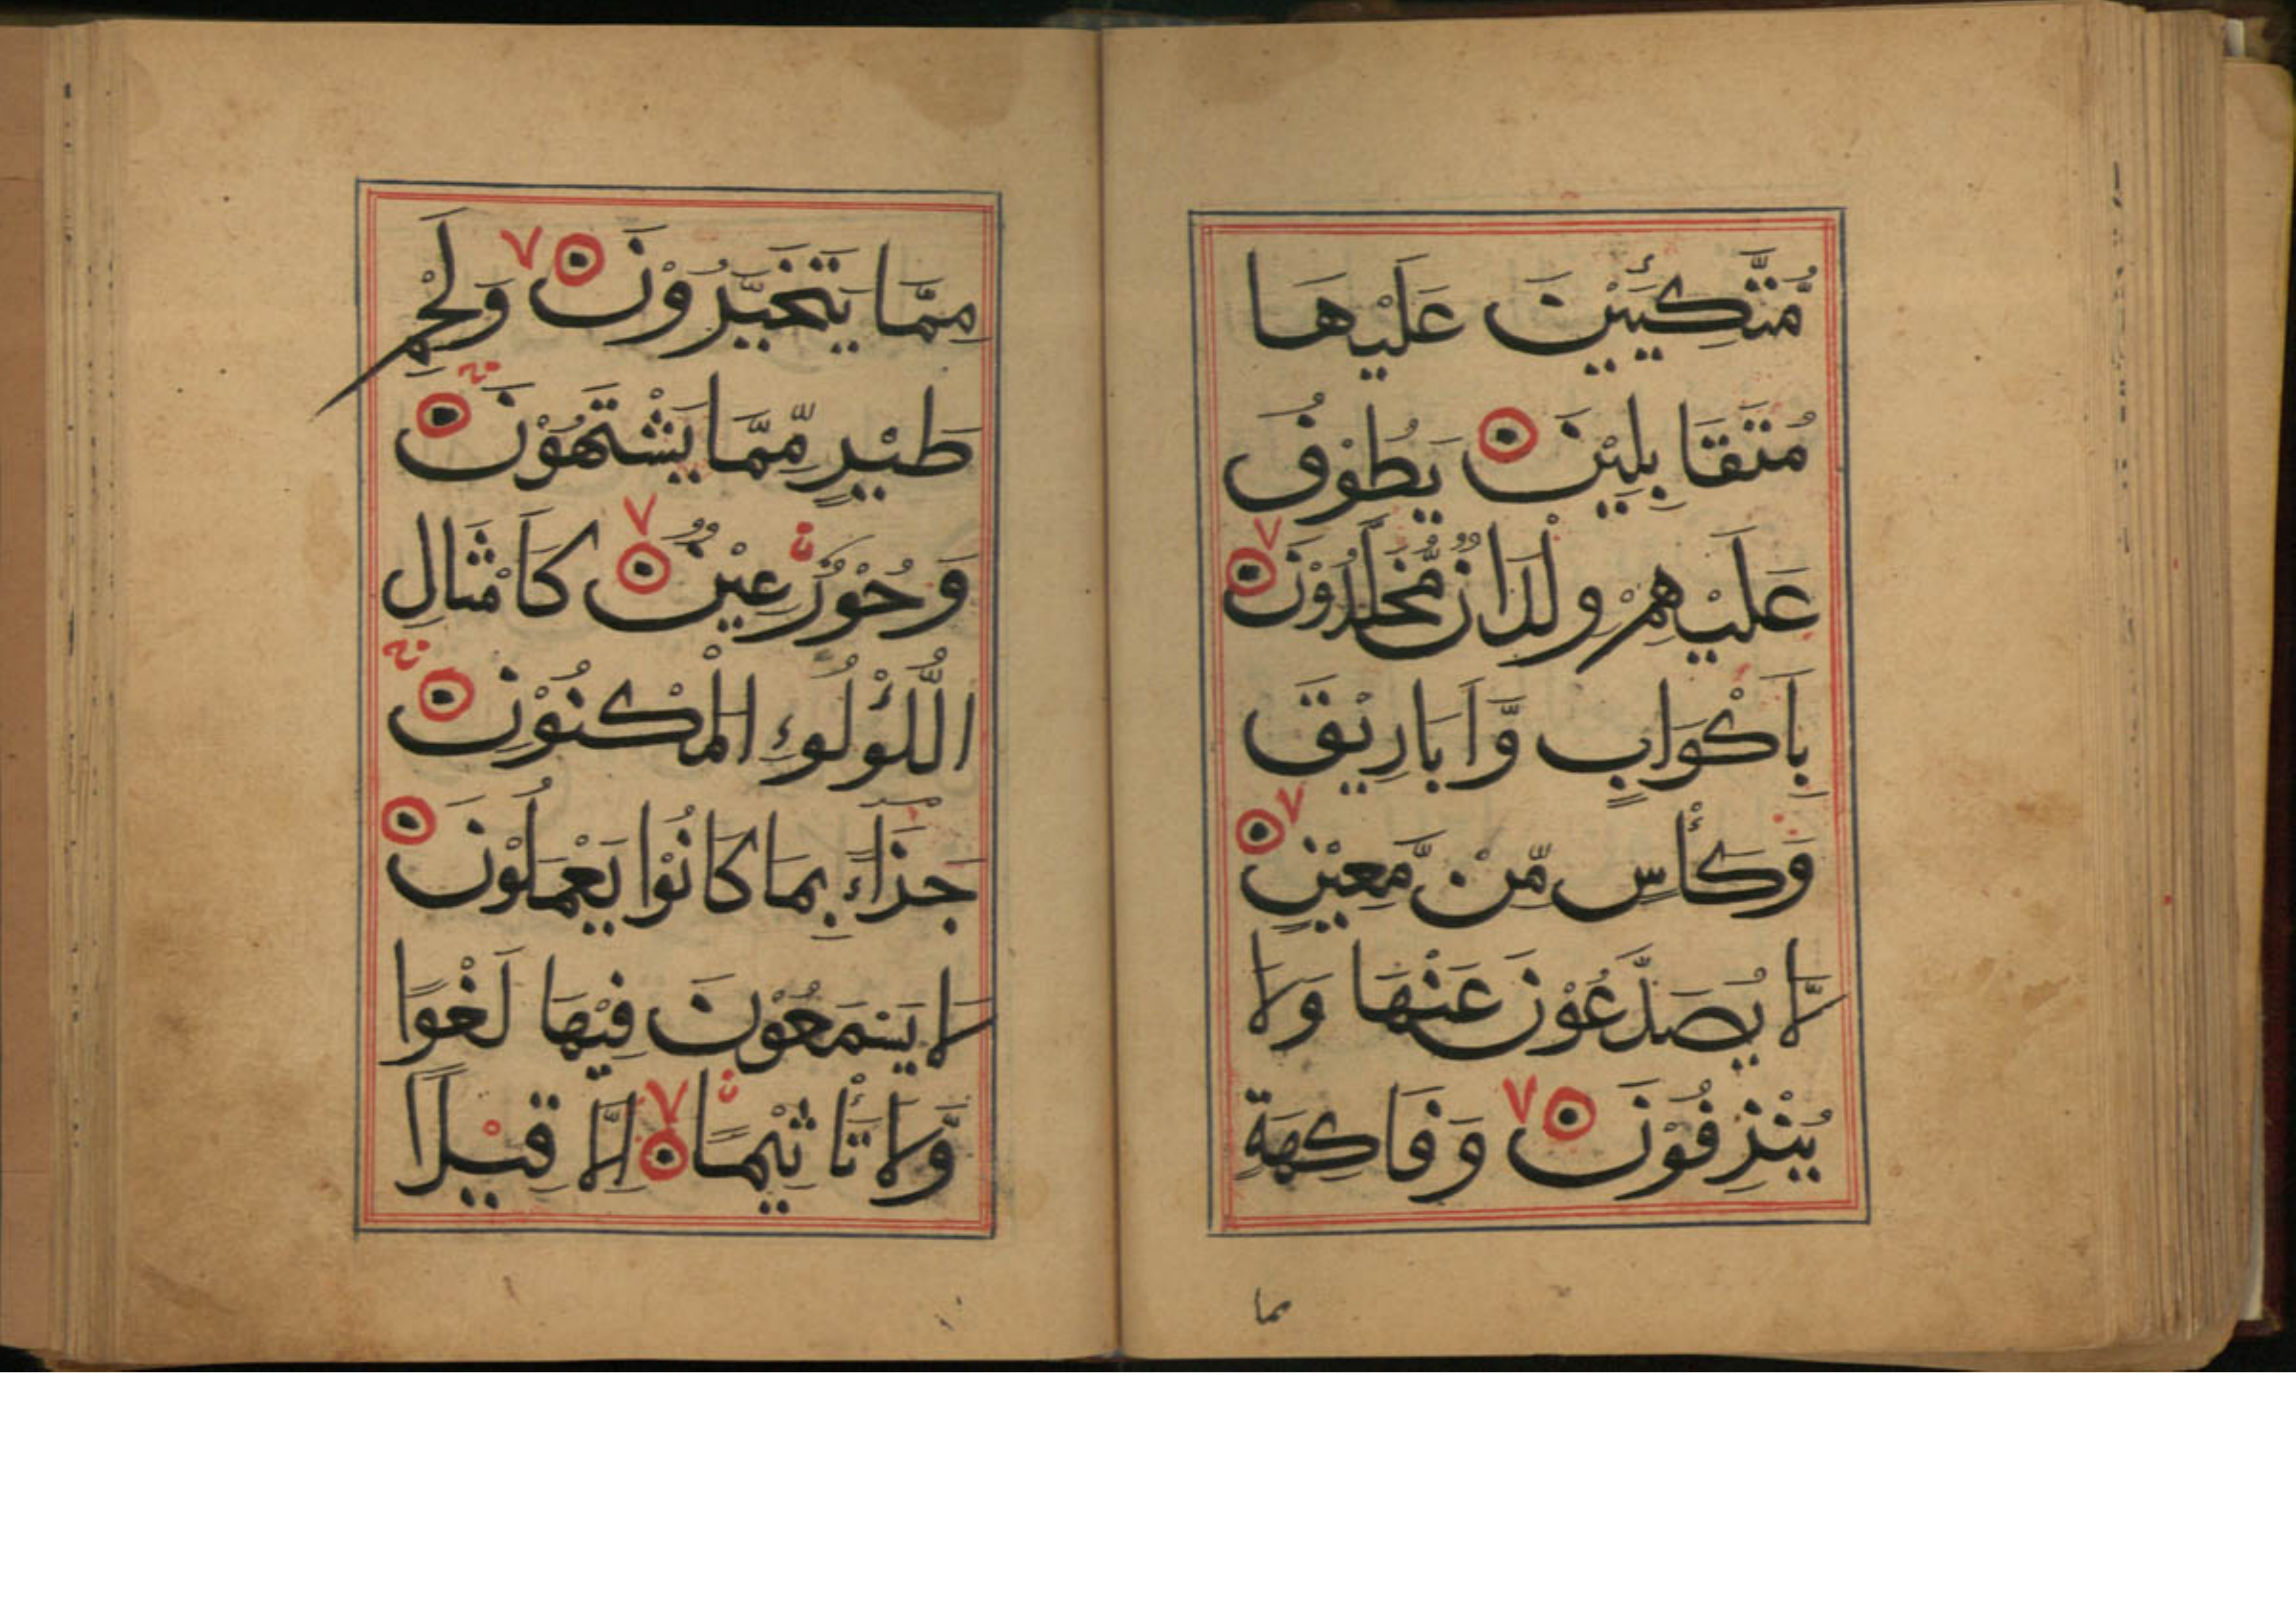 مُّتَّكِـِٕیْنَ عَلَیْهَا
مُتَقَابِلِیْنَ ۝ یَطُوْفُ
عَلَیْهِمْ وِلْدَانٌ مُّخَلَّدُوْنَ ۝
بِاَكْوَابٍ وَّاَبَارِیْقَ
وَكَأْسٍ مِّنْ مَّعِیْنٍ ۝
لَّا یُصَدَّعُوْنَ عَنْهَا وَلَا
یُنْزِفُوْنَ ۝ وَفَاكِهَةٍ
مما
مِمَّا یَتَخَیَّرُوْنَ ۝ وَلَحْمِ
طَیْرٍ مِّمَّا یَشْتَهُوْنَ ۝
وَحُوْرٌ عِیْنٌ ۝ كَاَمْثَالِ
اللُّؤْلُوءِ الْمَكْنُوْنِ ۝
جَزَآءً بِمَا كَانُوْا یَعْمَلُوْنَ ۝
لَا یَسْمَعُوْنَ فِیْهَا لَغْوًا
وَّلَا تَأْثِیْمًا ۝ اِلَّا قِیْلًا